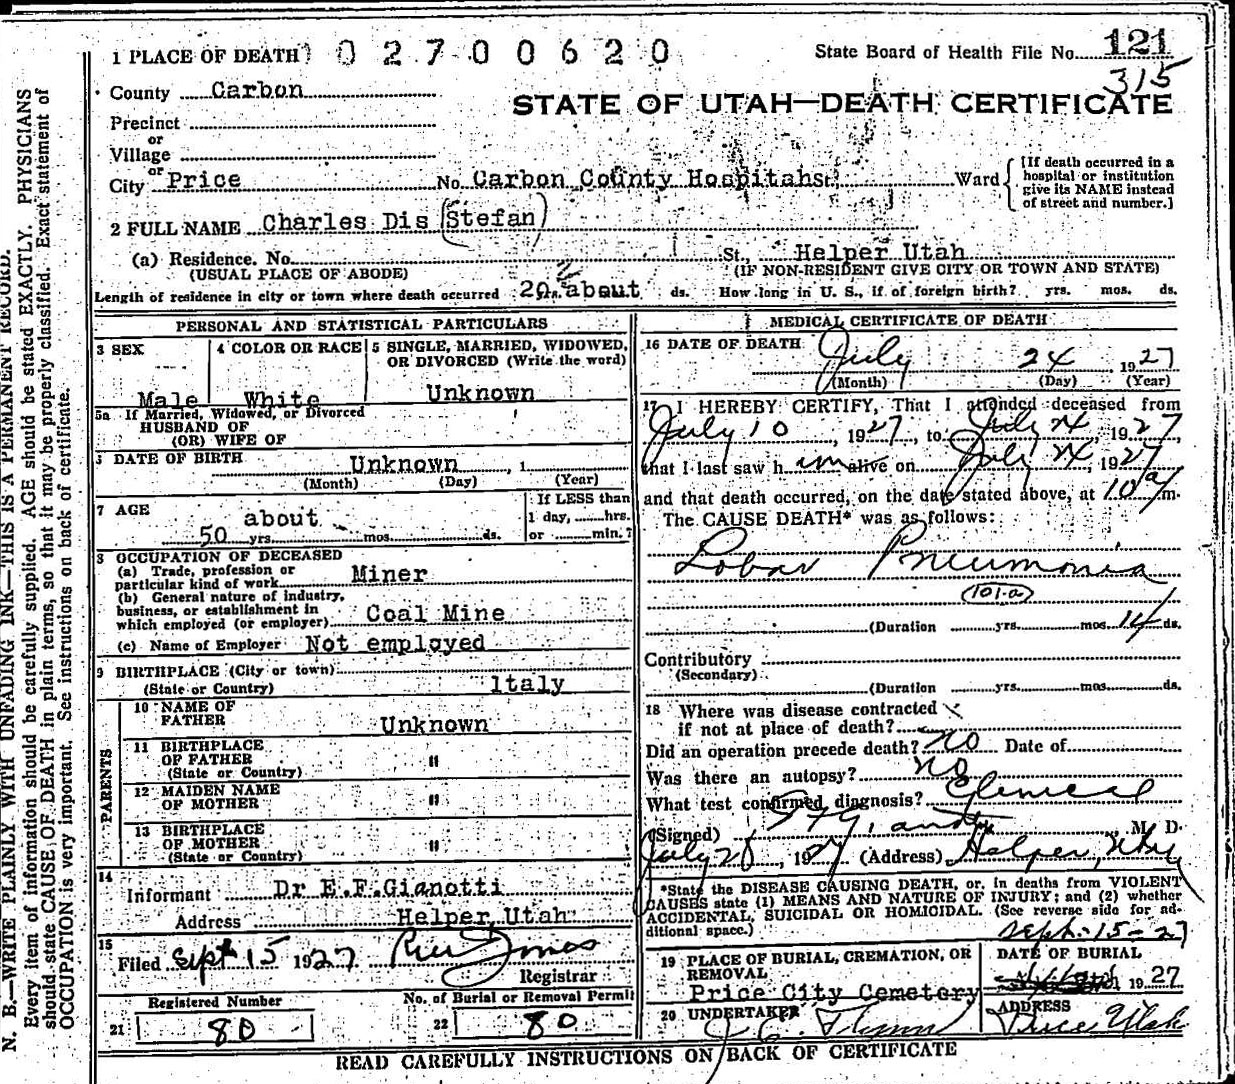 1 PLACE OF DEATH 02700620 State Board of Health File No. 121
315
County Carbon
STATE OF UTAH—DEATH CERTIFICATE
Precinct
or
Village
or
City Price No. Carbon County Hospital St. Ward
[If death occurred in a hospital or institution give its NAME instead of street and number.]
2 FULL NAME Charles Dis (Stefan)
(a) Residence. No. St., Helper Utah
(USUAL PLACE OF ABODE) (IF NON-RESIDENT GIVE CITY OR TOWN AND STATE)
Length of residence in city or town where death occurred 20 yrs. about ds. How long in U. S., if of foreign birth? yrs. mos. ds.
PERSONAL AND STATISTICAL PARTICULARS
3 SEX 4 COLOR OR RACE 5 SINGLE, MARRIED, WIDOWED,
OR DIVORCED (Write the word)
Male White Unknown
5a If Married, Widowed, or Divorced
HUSBAND OF
(OR) WIFE OF
DATE OF BIRTH Unknown , 1
(Month) (Day) (Year)
7 AGE about
50 yrs. mos. ds.
If LESS than
1 day, hrs.
or min.?
8 OCCUPATION OF DECEASED
(a) Trade, profession or
particular kind of work Miner
(b) General nature of industry,
business, or establishment in
which employed (or employer) Coal Mine
(c) Name of Employer Not employed
9 BIRTHPLACE (City or town)
(State or Country) Italy
PARENTS
10 NAME OF
FATHER Unknown
11 BIRTHPLACE
OF FATHER "
(State or Country)
12 MAIDEN NAME
OF MOTHER "
13 BIRTHPLACE
OF MOTHER "
(State or Country)
14
Informant Dr E.F.Gianotti
Address Helper Utah
15
Filed Sept 15 1927
Registrar
Registered Number No. of Burial or Removal Permit
21 80 22 80
MEDICAL CERTIFICATE OF DEATH
16 DATE OF DEATH July 24 1927
(Month) (Day) (Year)
17 I HEREBY CERTIFY, That I attended deceased from
July 10, 1927, to July 24, 1927,
that I last saw h im alive on July 24, 1927
and that death occurred, on the date stated above, at 10 a m.
The CAUSE DEATH* was as follows:
Lobar Pneumonia
101-a
(Duration yrs. mos. 14 ds.
Contributory
(Secondary)
(Duration yrs. mos. ds.
18 Where was disease contracted
if not at place of death?
Did an operation precede death? No Date of
Was there an autopsy? no
What test confirmed diagnosis? Clinical
(Signed) , M. D.
July 28, 1927 (Address) Helper, Utah
*State the DISEASE CAUSING DEATH, or, in deaths from VIOLENT
CAUSES state (1) MEANS AND NATURE OF INJURY; and (2) whether
ACCIDENTAL, SUICIDAL OR HOMICIDAL. (See reverse side for ad-
ditional space.)
Sept-15-27
19 PLACE OF BURIAL, CREMATION, OR
REMOVAL
Price City Cemetery
DATE OF BURIAL
1927
20 UNDERTAKER
ADDRESS
J C Flynn Price Utah
READ CAREFULLY INSTRUCTIONS ON BACK OF CERTIFICATE
N. B.—WRITE PLAINLY WITH UNFADING INK—THIS IS A PERMANENT RECORD.
Every item of information should be carefully supplied. AGE should be stated EXACTLY. PHYSICIANS
should state CAUSE OF DEATH in plain terms, so that it may be properly classified. Exact statement of
OCCUPATION is very important. See instructions on back of certificate.